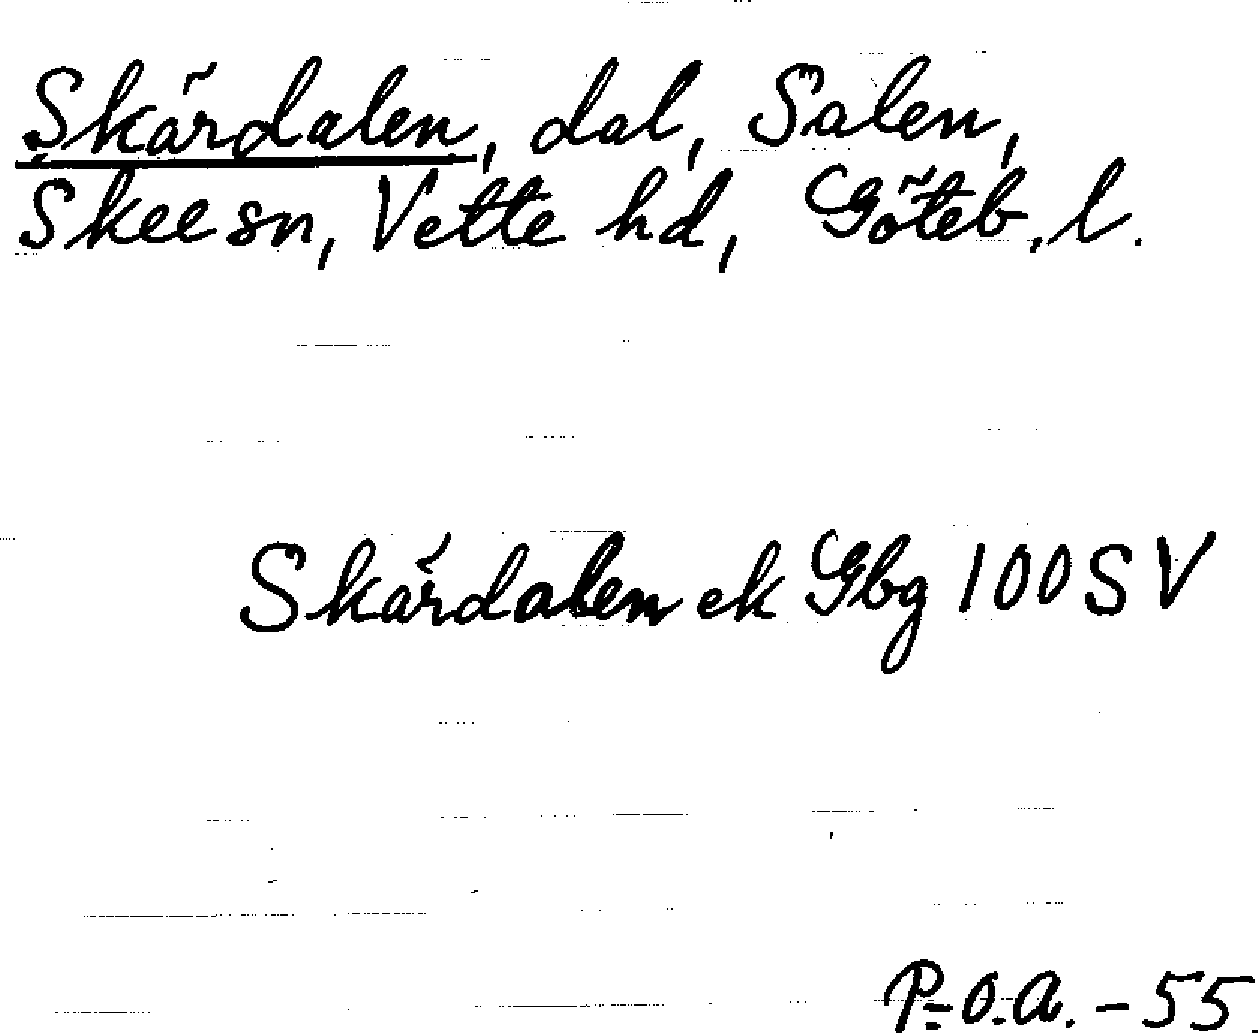 Skärdalen, dal, Salen,
Skee sn, Vette hd, Göteb. l.
Skärdalen ek Gbg 100 SV
P.-O.A. - 55.